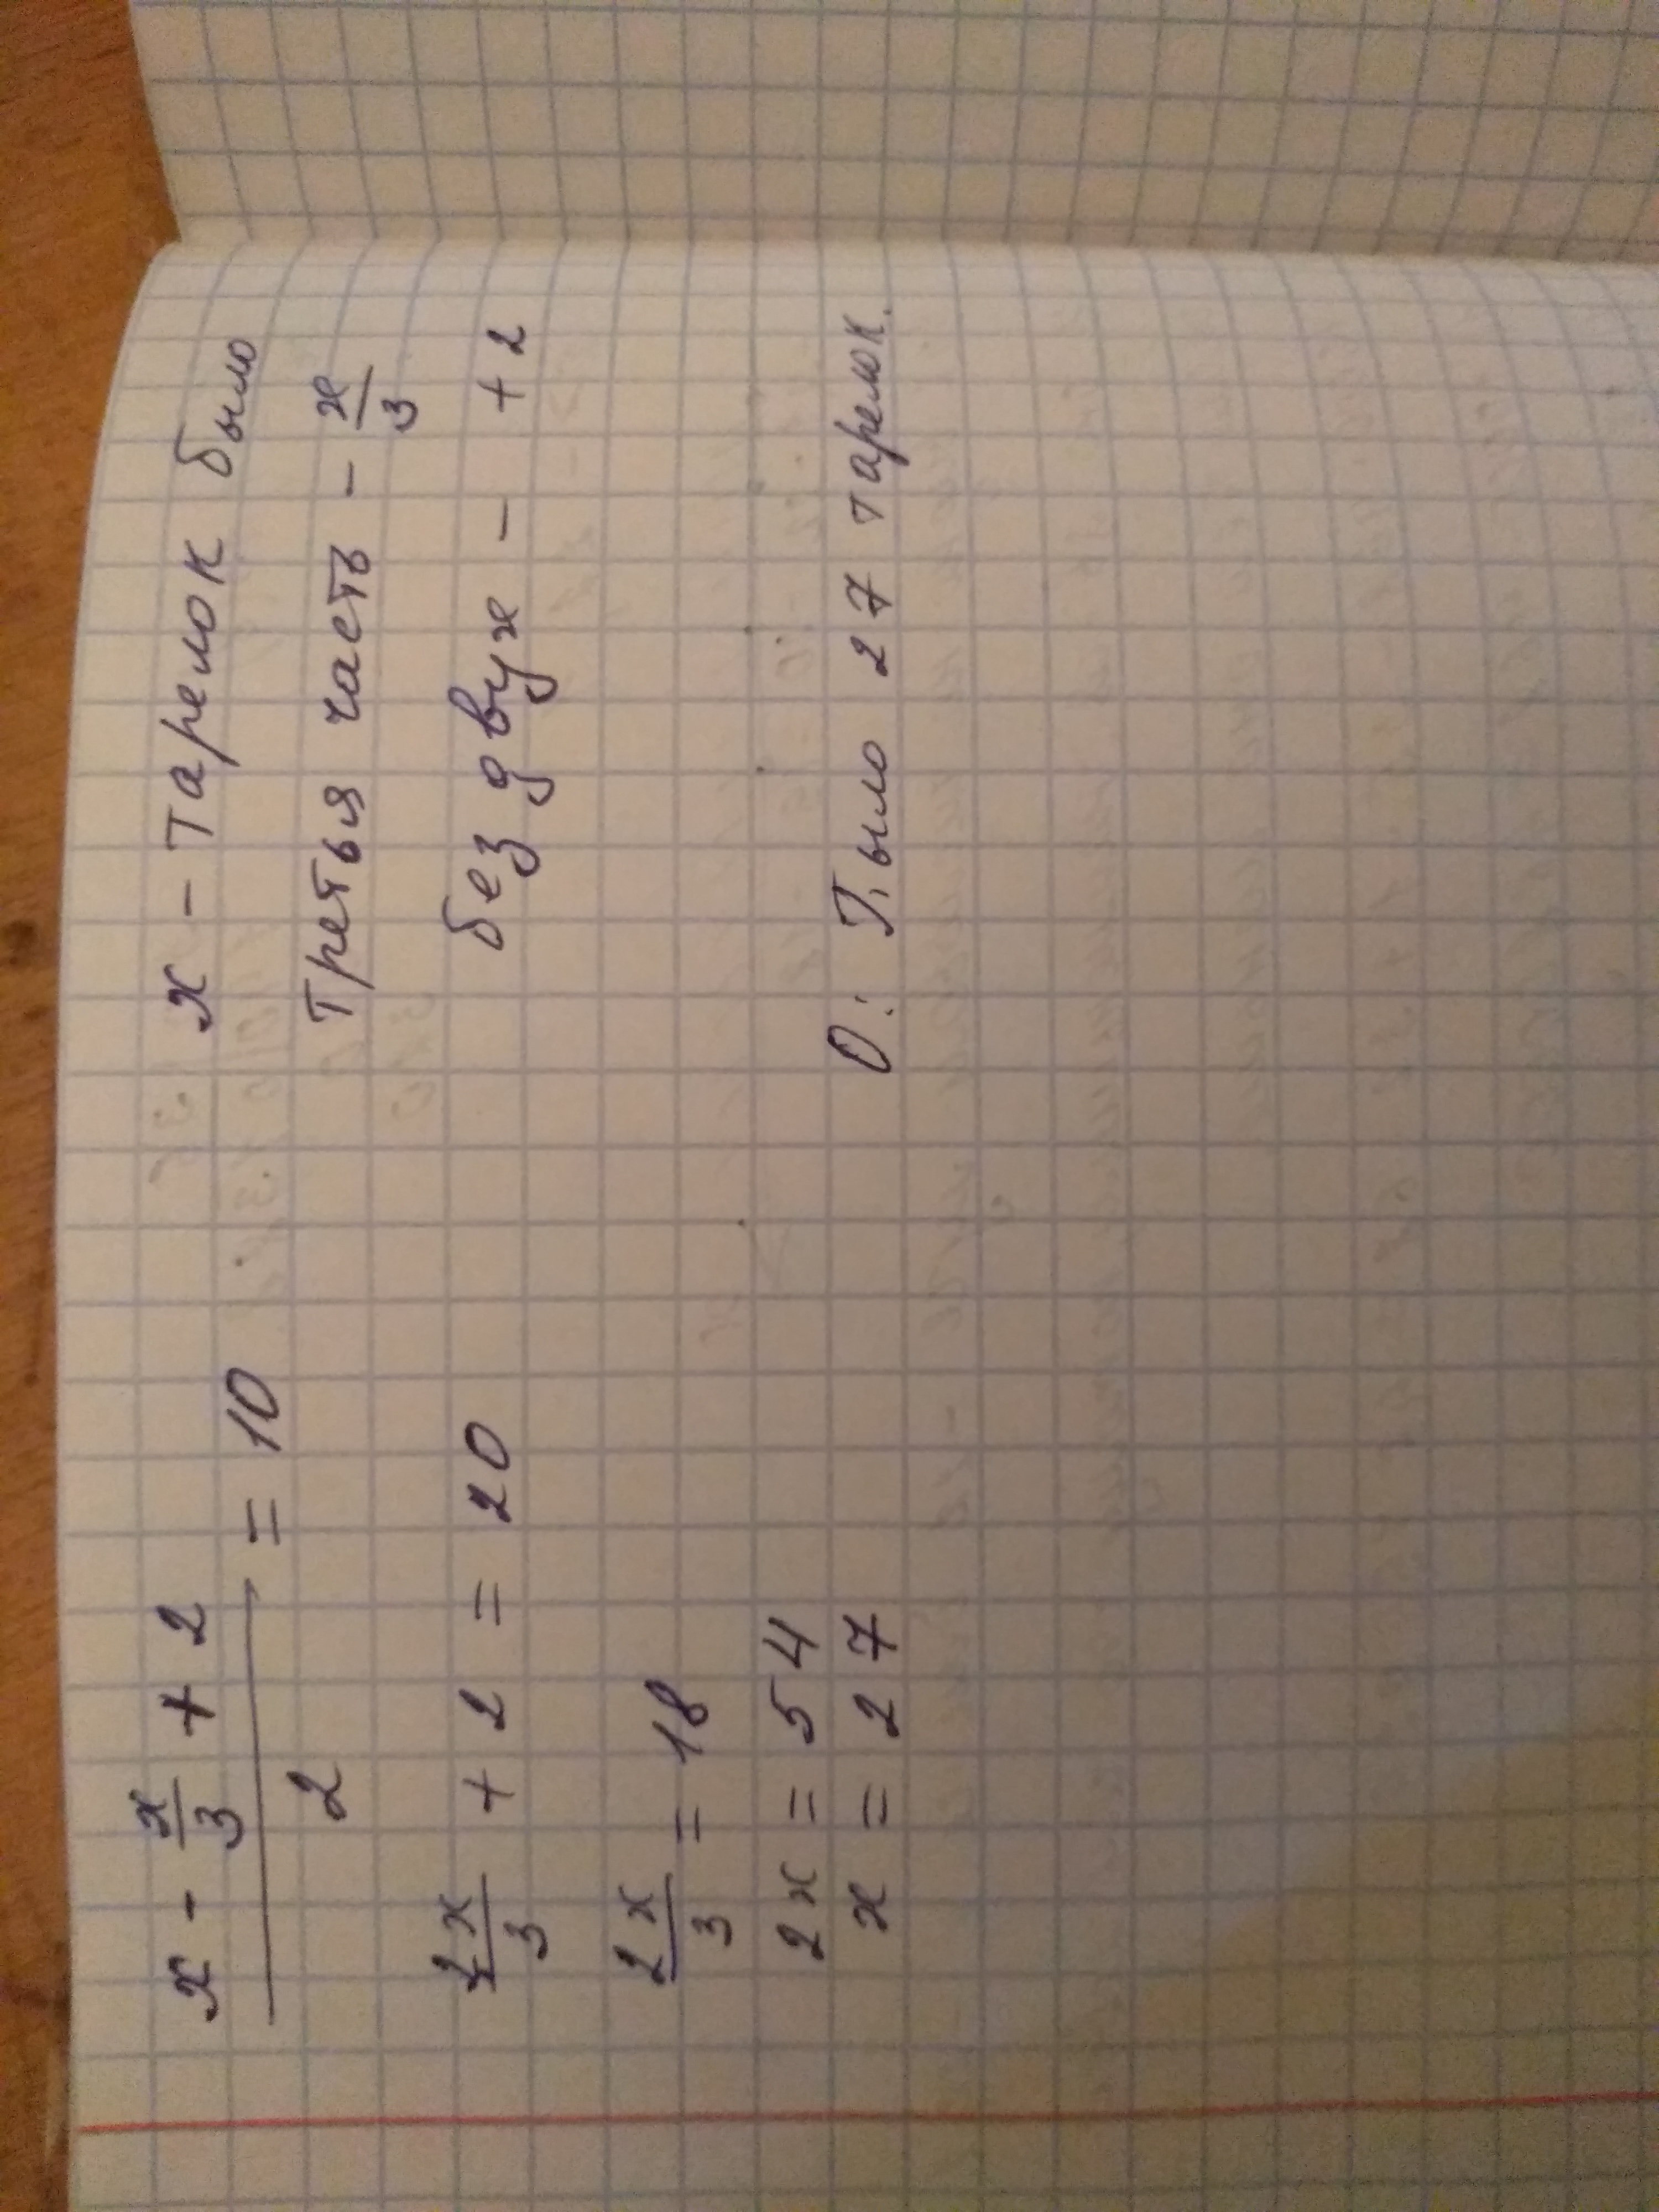 x - x/3 + 2
2
= 10
2x/3 + 2 = 20
2x/3 = 18
2x = 54
x = 27
x - тарелок было
Третья часть - x/3
без двух - + 2
О: Было 27 тарелок.